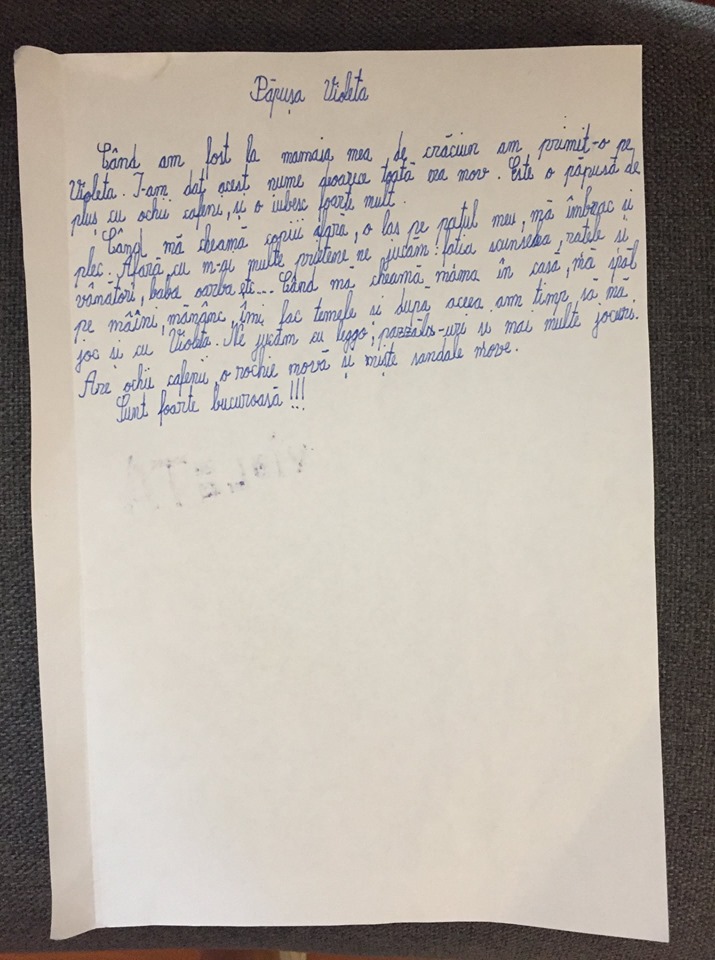 Păpușa Violeta
Când am fost la mamaia mea de crăciun am primit-o pe
Violeta. I-am dat acest nume deoarece toată era mov. Este o păpușă de
pluș cu ochii cafenii, și o iubesc foarte mult.
Când mă cheamă copiii afară, o las pe patul meu, mă îmbrac și
plec. Afară cu m-ai multe prietene ne jucăm: fația scunselea, rațele și
vânători, baba oarba, etc... Când mă cheamă mama în casă, mă spăl
pe mâini, mănânc, îmi fac temele si dupa aceea am timp să mă
joc si cu Violeta. Ne jucăm cu leggo, pazzălu-uri si mai multe jocuri.
Are ochii cafenii, o rochie movă și niște sandale move.
Sunt foarte bucuroasă!!!
VIOLETA